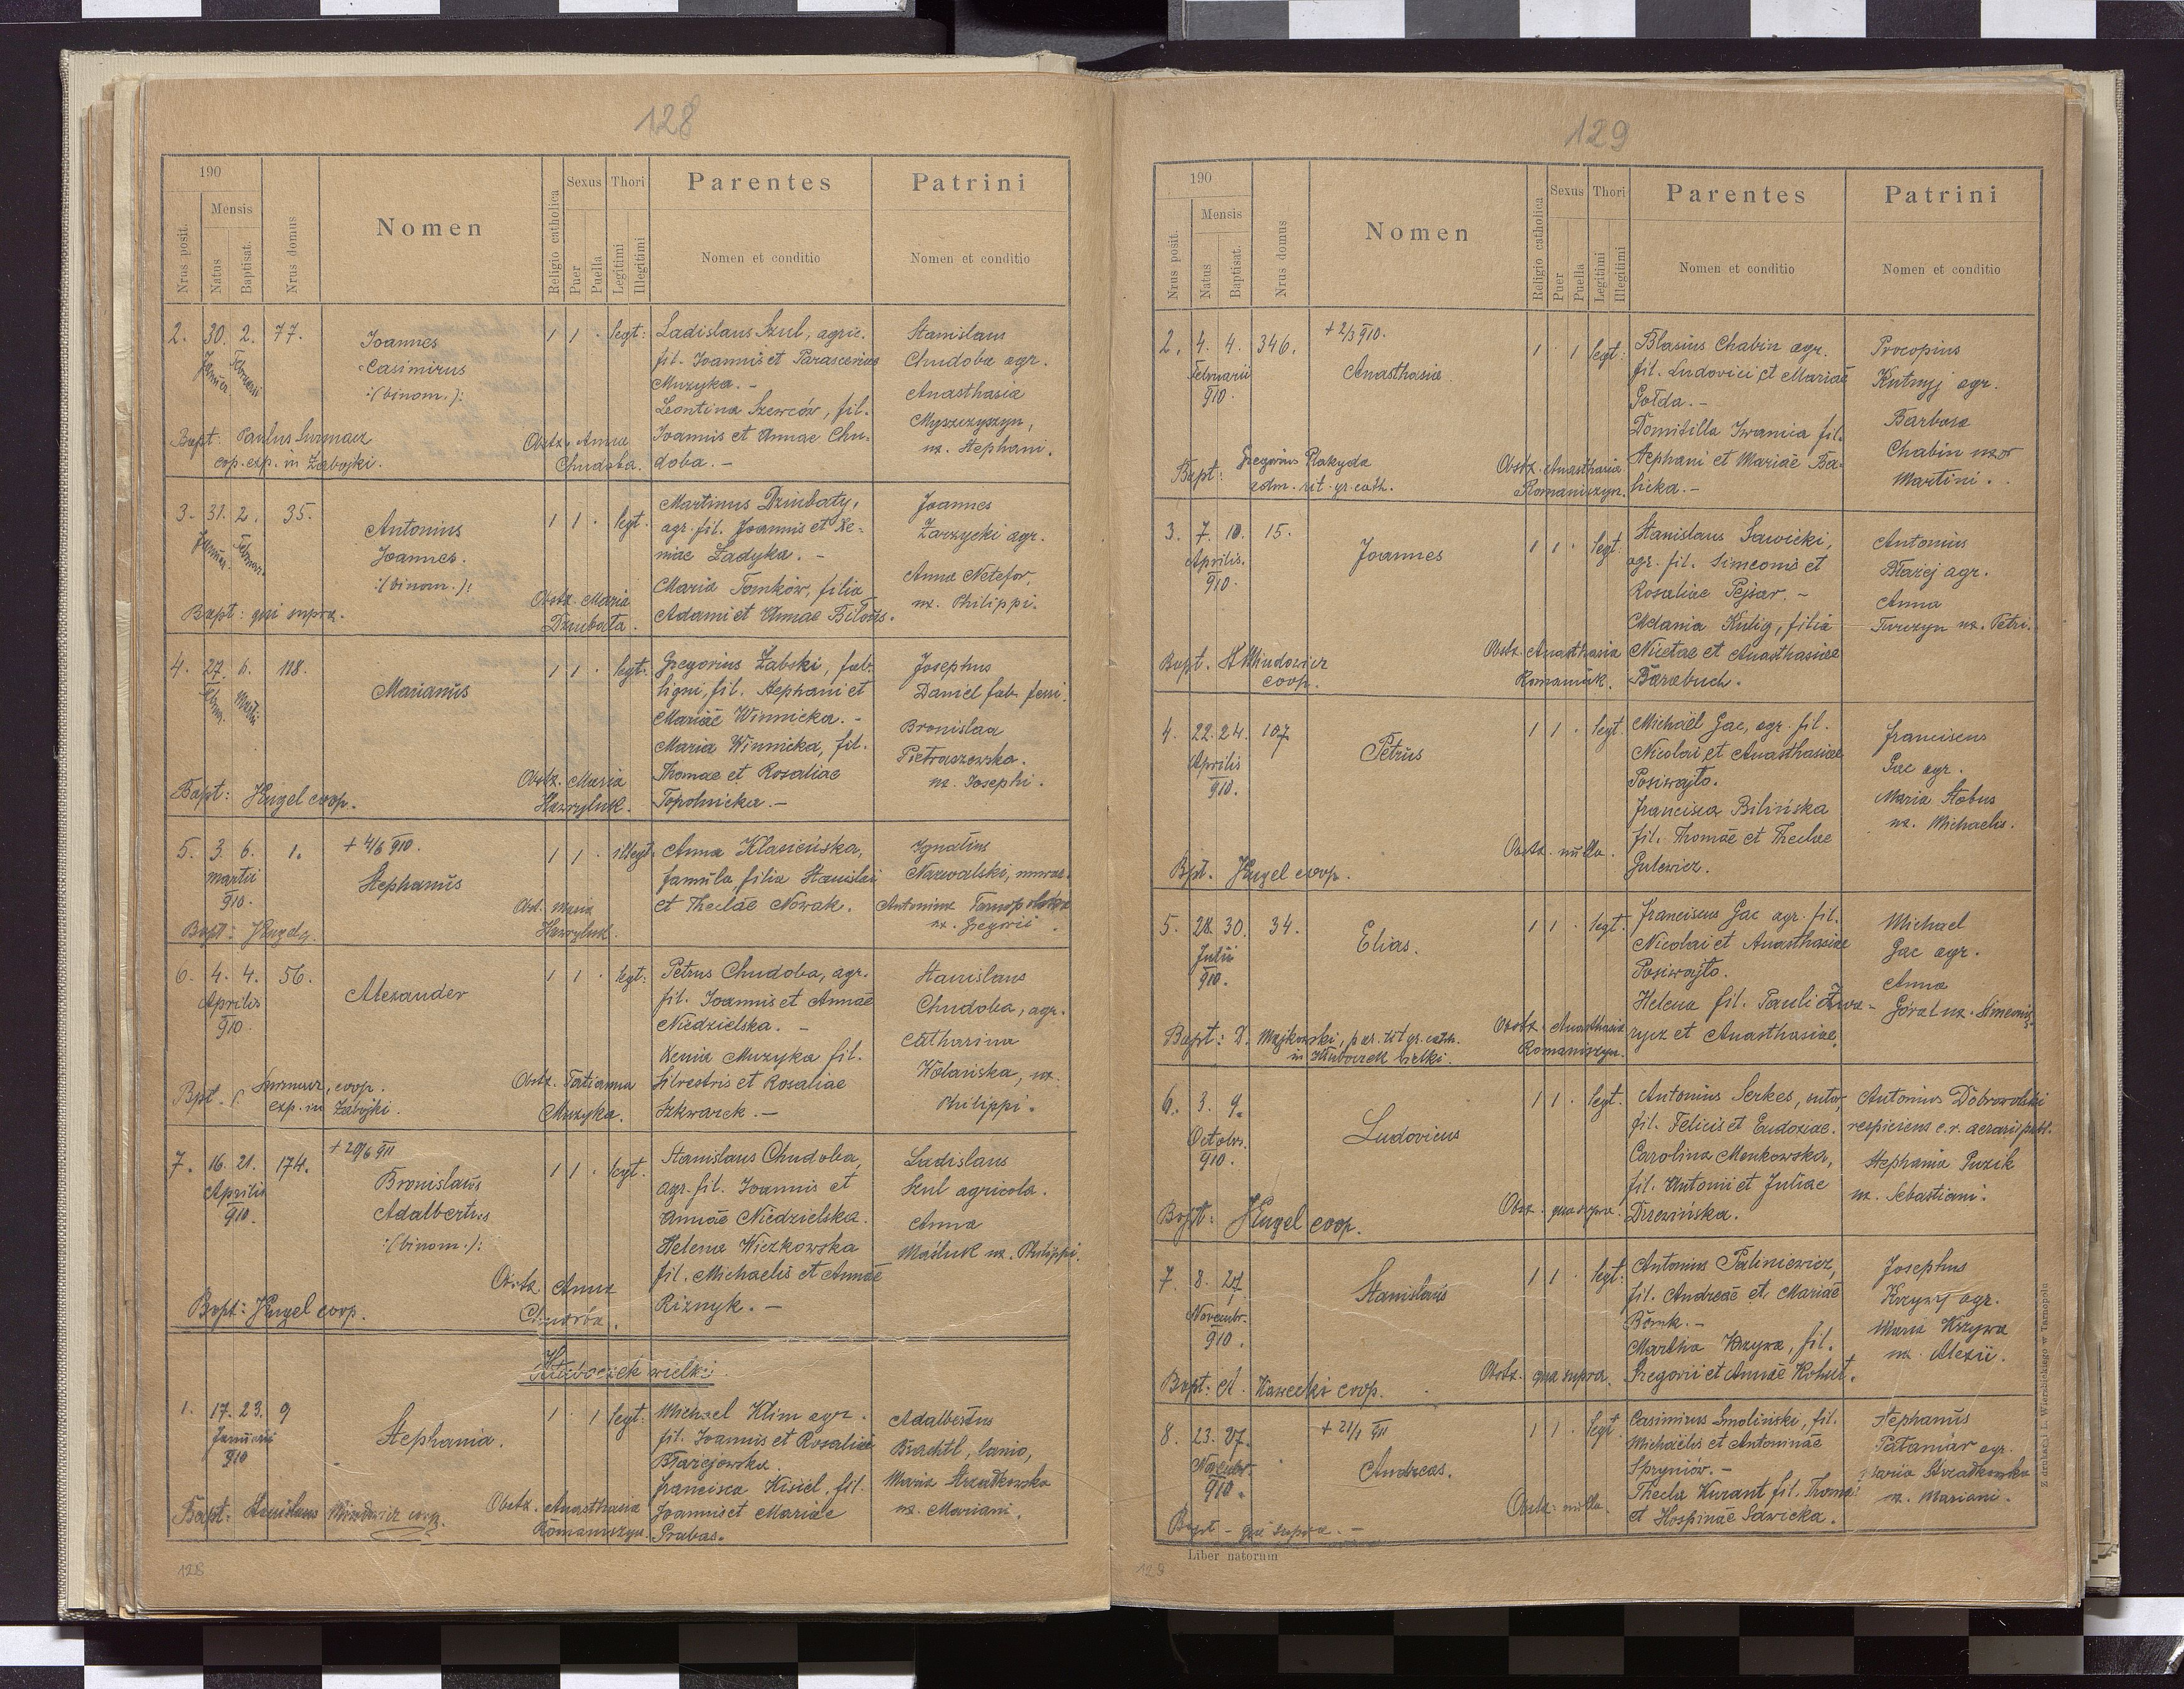 128
190
Mensis
Nrus posit.
Natus
Baptisat.
Nrus domus
Nomen
Religio catholica
Sexus
Puer
Puella
Thori
Legitimi
Illegitimi
Parentes
Nomen et conditio
Patrini
Nomen et conditio
2. 30. 2. 77.
Joannes
Casimirus
:(binom.):
1 1 · legt:
Ladislaus Szul, agric.
fil. Joannis et Parascevias
Muzyka. -
Leontina Szewców, fil.
Joannis et Annae Chu-
doba. -
Stanislaus
Chudoba agr.
Anasthasia
Myszczyszyn,
ux. Stephani.
Bapt: Paulus Surmacz
cop. exp. in Zabojki.
Obstz. Anna
Chudoba.
3. 31. 2. 35.
Antonius
Joannes.
:(binom.):
1 1 · legt.
Martinus Dziubaty,
agr. fil. Joannis et Xe-
niae Ladyka. -
Maria Tomków, filia
Adami et Annae Bilous.
Joannes
Zarzycki agr.
Anna Netefor,
ux. Philippi.
Bapt: qui supra.
Obstz. Maria
Dziubata.
4. 27. 6. 118.
Marianus
1 1 · legt.
Gregorius Zabski, fab.
ligni, fil. Stephani et
Mariae Winnicka. -
Maria Winnicka, fil.
Thomae et Rosaliae
Topolnicka. -
Josephus
Daniel fab. ferri.
Bronislaa
Pietraszewska.
ux. Josephi.
Bapt: JEngel coop.
Obstz. Maria
Hawryluk.
5. 3. 6. 1.
martii
910.
+ 4/6 910.
Stephanus
1 1 · illegt.
Anna Klasicińska,
famula, filia Stanislai
et Theclae Nowak.
Ignatius
Nawalski, murar.
Antonina Tarnopolska
ux. Gregorii
Obst. Maria
Hawryluk.
6. 4. 4. 56.
Aprilis
910.
Alexander
1 1 · legt:
Petrus Chudoba, agr.
fil. Joannis et Annae
Niedzielska. -
Xenia Muzyka fil.
Silvestris et Rosaliae
Szkwarek. -
Stanislaus
Chudoba, agr.
Catharina
Wolańska, ux.
Philippi.
Bpt. P. Surmacz, coop.
exp. in Zabojki.
Obstz. Tatianna
Muzyka.
7. 16. 21. 174.
Aprilis
910.
+ 20/6 911
Bronislaus
Adalbertus
:(binom.):
1 1 · legt.
Stanislaus Chudoba,
agr. fil. Joannis et
Annae Niedzielska.
Helena Wiczkowska
fil. Michaelis et Annae
Riznyk. -
Ladislaus
Szul agricola.
Anna
Maśluk ux. Philippi.
Bapt: JEngel coop.
Obstz. Anna
Hłuboczek wielki:
1. 17. 23. 9
Januarii
910
Stephania.
1 · 1 legt:
Michael Klim agr.
fil. Joannis et Rosaliae
Błazejowska.
Francisca Kisiel, fil.
Joannis et Mariae
Grabas.
Adalbertus
Brachtl, lanio,
Maria Strzadkowska
ux. Mariani.
Bapt: Stanislaus Mindowicz coop.
Obstz. Anasthasia
Romaniszyn.
128
129
190
Mensis
Nrus posit.
Natus
Baptisat.
Nrus domus
Nomen
Religio catholica
Sexus
Puer
Puella
Thori
Legitimi
Illegitimi
Parentes
Nomen et conditio
Patrini
Nomen et conditio
2. 4. 4. 346.
Februarii
910.
+ 2/3 910.
Anasthasia
1 · 1 legt:
Blasius Chabin agr.
fil. Ludovici et Mariae
Gołda. -
Domitilla Iwanica fil.
Stephani et Mariae Ba-
licka. -
Procopius
Kutnyj agr.
Barbara
Chabin uxor
Martini.
Bapt: Gregorius Rakyda
adm. rit. gr. cath.
Obstz. Anasthasia
Romaniszyn.
3. 7. 10. 15.
Aprilis.
910.
Joannes
1 1 · legt:
Stanislaus Sawicki,
agr. fil. Simeonis et
Rosaliae Pejsar. -
Adania Kulig, filia
Nicetae et Anasthasiae
Barabuch.
Antonius
Błazej agr.
Anna
Turczyn ux. Petri.
Bapt. S Mindowicz
coop.
Obstz. Anasthasia
Romaniuk.
4. 22. 24. 107
Aprilis
910.
Petrus
1 1 · legt.
Michaël Gac, agr. fil.
Nicolai et Anasthasiae
Posiwajto.
Francisca Bilińska
fil. Thomae et Theclae
Gulewicz.
Franciscus
Gac agr.
Maria Stobus
ux. Michaelis.
Bpt. JEngel coop.
Obstz. nulla.
5. 28. 30. 34.
Julii
910.
Elias.
1 1 · legt.
Franciscus Gac agr. fil.
Nicolai et Anasthasiae
Posiwajto.
Helena fil. Pauli Zwa-
rycz et Anasthasiae.
Michael
Gac agr.
Anna
Góral ux. Simeonis.
Bapt: D. Majkowski, par. rit gr. cath.
in Hłuboczek wielki.
Obstz. Anasthasia
Romaniszyn.
6. 3. 9.
Octobr.
910.
Ludovicus
1 1 · legt.
Antonius Serkes, sutor,
fil. Felicis et Eudoxiae.
Carolina Menkowska,
fil. Antonii et Juliae
Drzewińska.
Antonius Dobrowolski
respiciens c.r. aerarii publ.
Stephania Puzik
ux. Sebastiani.
Bapt: JEngel coop.
Obstz. qua supra.
7. 8. 27
Novembr.
910.
Stanislaus
1 1 · legt:
Antonius Paliniewicz,
fil. Andreae et Mariae
Bomk. -
Martha Krzywa, fil.
Gregorii et Annae Kohut.
Josephus
Krzywy agr.
Maria Krzywa
ux. Alexii.
Bapt: A. Kawecki coop.
Obstz. qua supra.
8. 23. 27.
Novembr.
910.
+ 21/1 911
Andreas.
1 1 · legt.
Casimirus Smoliński, fil.
Michaëlis et Antoninae
Spryniów. -
Thecla Kurant fil. Thomae
et Hospinae Sawicka.
Stephanus
Pataniar agr.
Maria Strzadkowska
ux. Mariani.
Bapt - qui supra. -
Obstz. nulla.
Liber natorum
129
Z drukarni L. Wierzbickiego w Tarnopolu